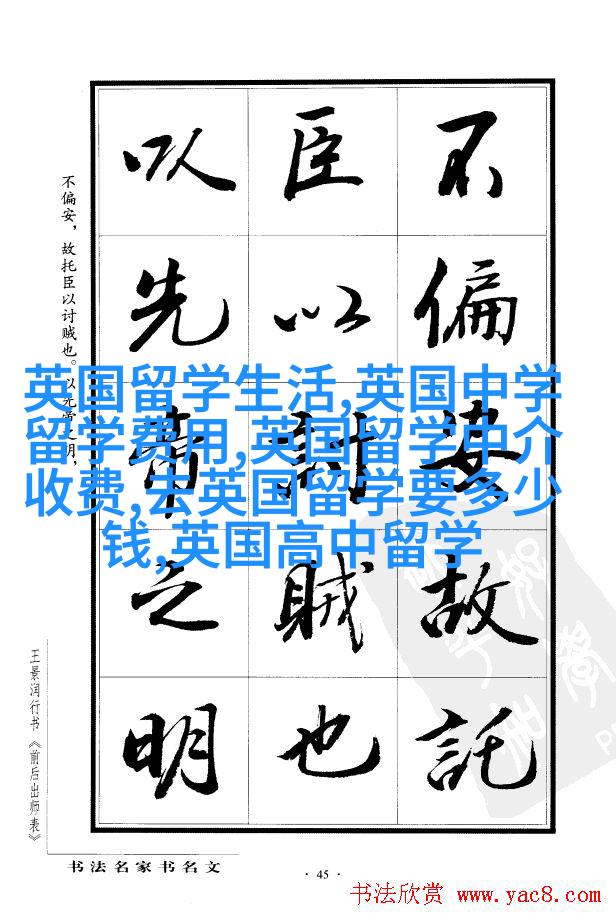 不偏安故託
臣以討賊也
以先帝之明
不偏安，故托臣以讨贼也。以先帝之明，
英国留学生活,英国中学
留学费用,英国留学中介
收费,去英国留学要多少
钱,英国高中留学
王景润行书《前后出师表》
书法名家书名文
·45·
书法欣赏 www.yac8.com